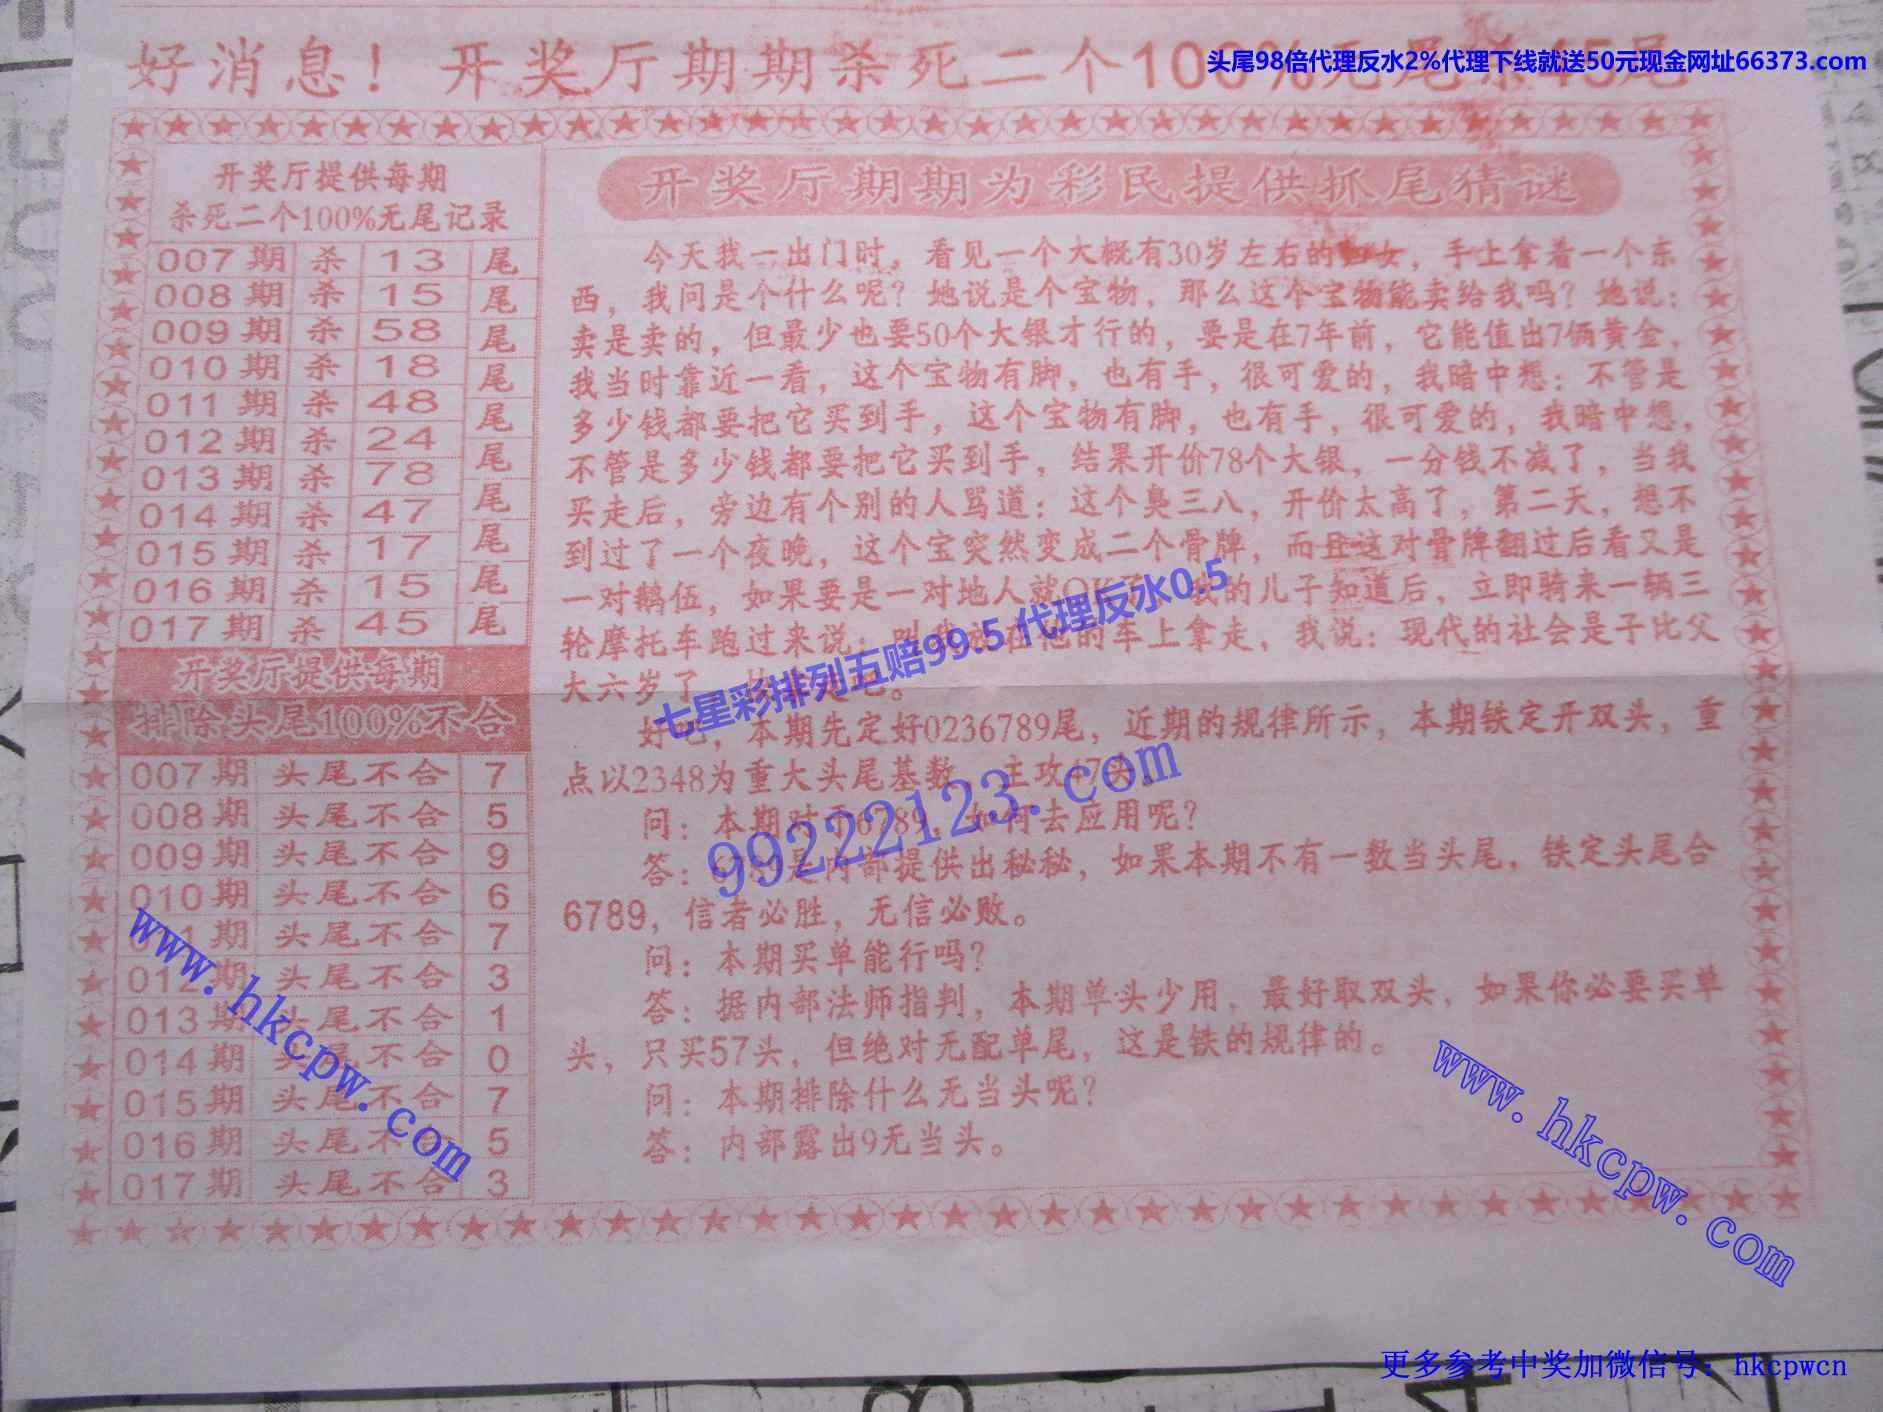 头尾98倍代理反水2%代理下线就送50元现金网址66373.com
好消息！开奖厅期期杀死二个100%无尾杀45尾
开奖厅提供每期
杀死二个100%无尾记录
007期 杀 13 尾
008期 杀 15 尾
009期 杀 58 尾
010期 杀 18 尾
011期 杀 48 尾
012期 杀 24 尾
013期 杀 78 尾
014期 杀 47 尾
015期 杀 17 尾
016期 杀 15 尾
017期 杀 45 尾
开奖厅提供每期
排除头尾100%不合
007期 头尾不合 7
008期 头尾不合 5
009期 头尾不合 9
010期 头尾不合 6
1期 头尾不合 7
012期 头尾不合 3
013期 头尾不合 1
014期 头尾不合 0
015期 头尾不合 7
016期 头尾不合 5
017期 头尾不合 3
开奖厅期期为彩民提供抓尾猜谜
今天我一出门时，看见一个大概有30岁左右的妇女，手上拿着一个东
西，我问是个什么呢？她说是个宝物，那么这个宝物能卖给我吗？她说：
卖是卖的，但最少也要50个大银才行的，要是在7年前，它能值出7俩黄金，
我当时靠近一看，这个宝物有脚，也有手，很可爱的，我暗中想：不管是
多少钱都要把它买到手，这个宝物有脚，也有手，很可爱的，我暗中想，
不管是多少钱都要把它买到手，结果开价78个大银，一分钱不减了，当我
买走后，旁边有个别的人骂道：这个臭三八，开价太高了，第二天，想不
到过了一个夜晚，这个宝突然变成二个骨牌，而且这对骨牌翻过后看又是
一对鹅伍，如果要是一对地人就OK了，我的儿子知道后，立即骑来一辆三
轮摩托车跑过来说：在他的车上拿走，我说：现代的社会是子比父
大六岁了，吧。
好吧，本期先定好0236789尾，近期的规律所示，本期铁定开双头，重
点以2348为重大头尾基数，主攻47头。
问：本期对于6789，如何去应用呢？
答：6789是内部提供出秘秘，如果本期不有一数当头尾，铁定头尾合
6789，信者必胜，无信必败。
问：本期买单能行吗？
答：据内部法师指判，本期单头少用，最好取双头，如果你必要买单
头，只买57头，但绝对无配单尾，这是铁的规律的。
问：本期排除什么无当头呢？
答：内部露出9无当头。
七星彩排列五赔99.5代理反水0.5
99222123.com
www.hkcpw.com
www.hkcpw.com
更多参考中奖加微信号：hkcpwcn